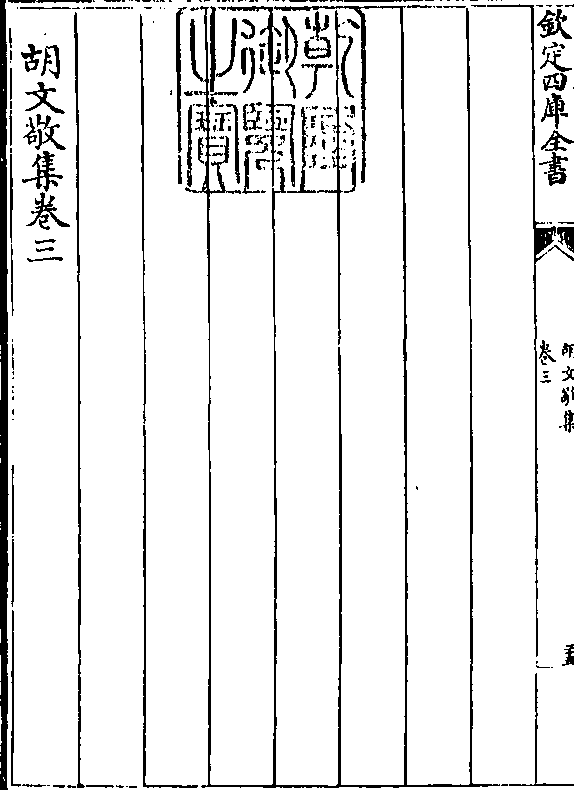 欽定四庫全書
胡文敬集
卷三
乾隆御覽之寶
胡文敬集卷三